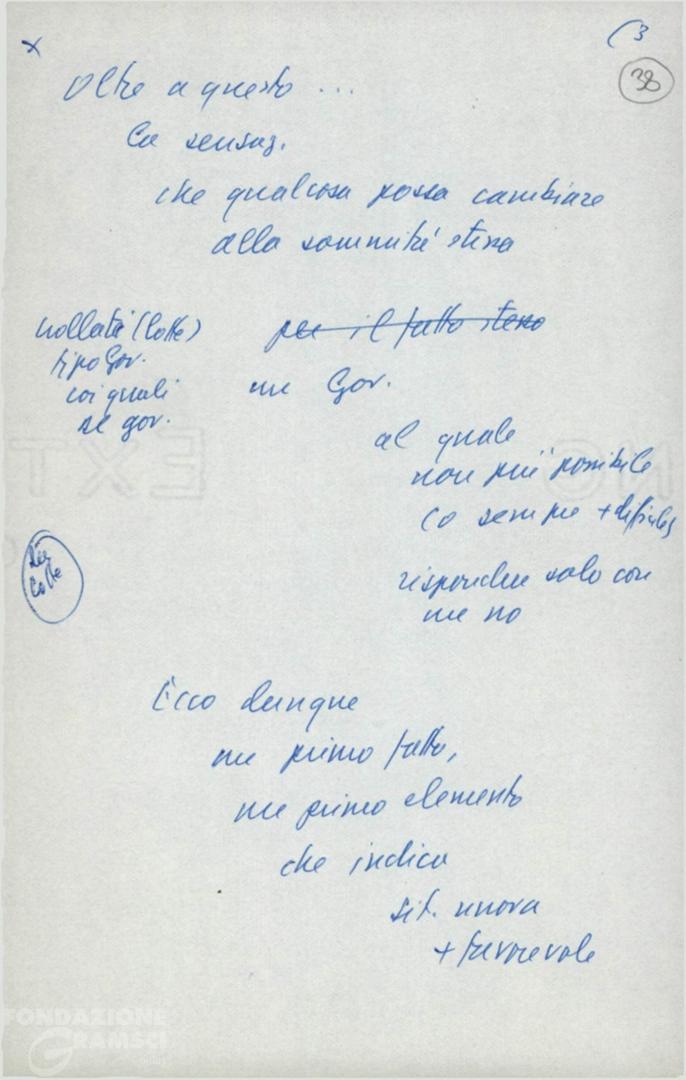 x
(3
38
Oltre a questo ...
la sensaz.
che qualcosa possa cambiare
alla sommità stessa
per il fatto stesso
(lotte)
tipo Gov.
coi quali
gov.
un Gov.
al quale
non più possibile
(o sempre + difficile)
rispondere solo con
un no
lotte
Ecco dunque
un primo fatto,
un primo elemento
che indica
sit. nuova
+ favorevole
FONDAZIONE
GRAMSCI